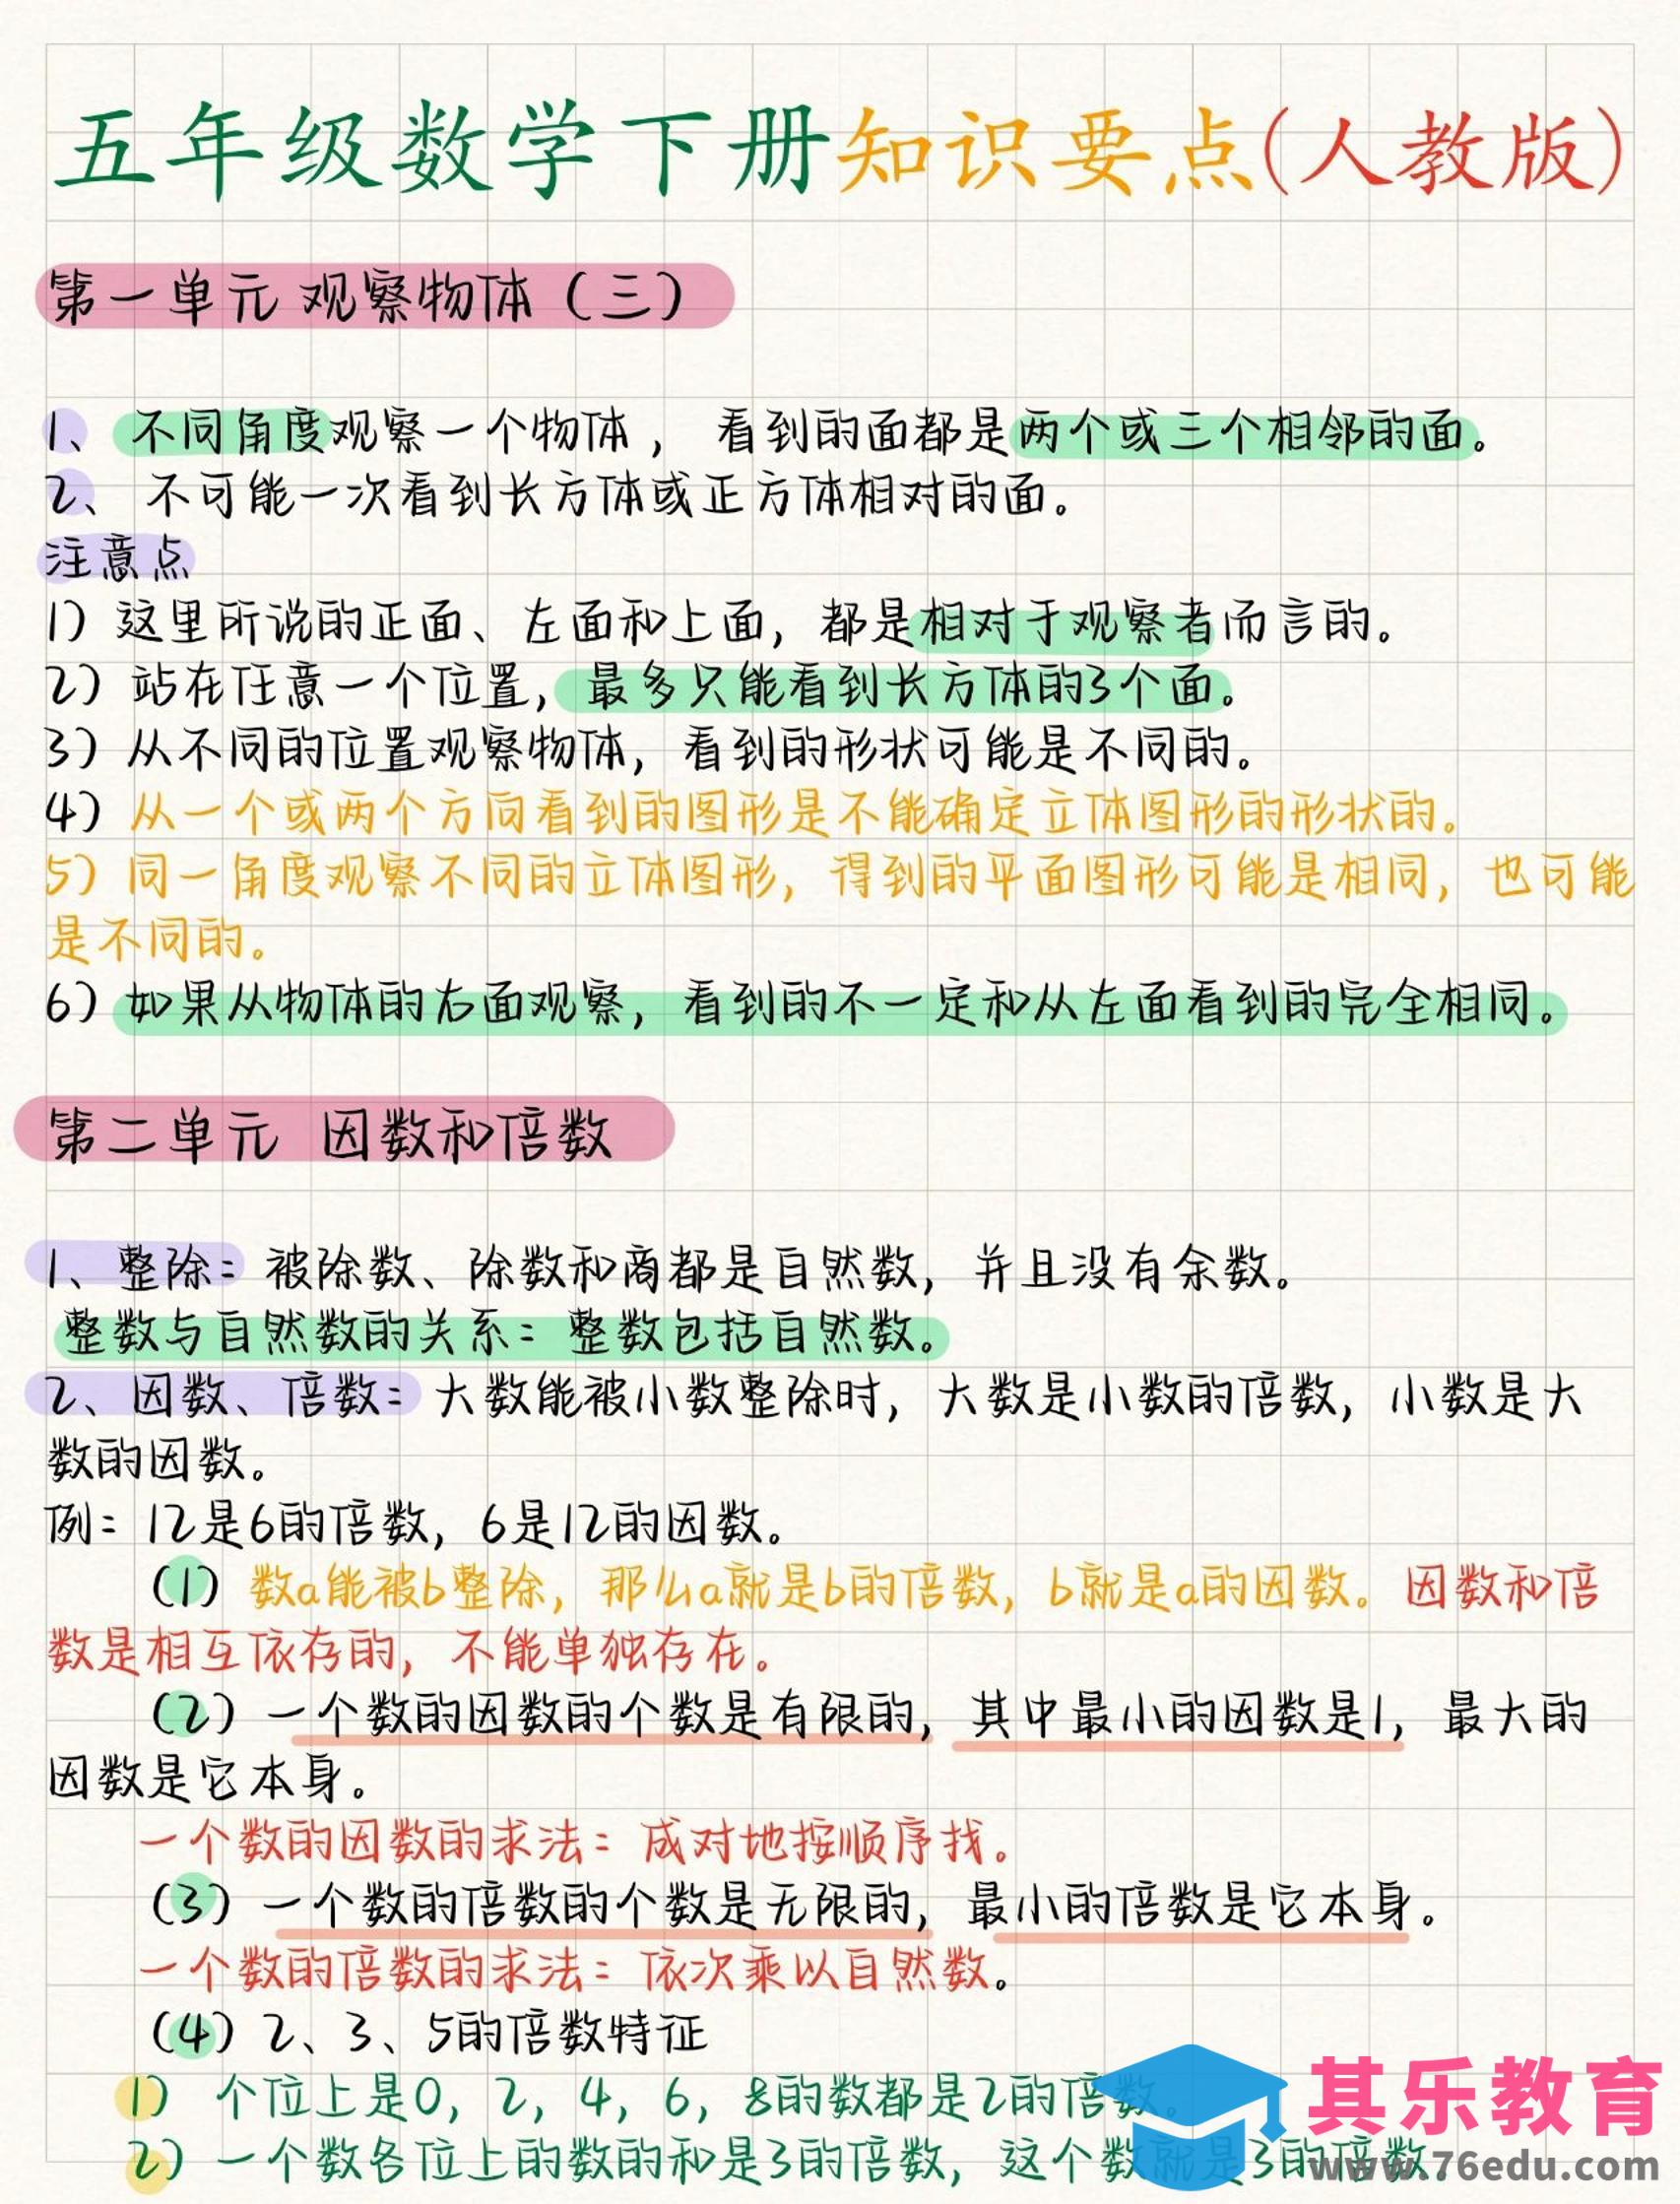 五年级数学下册知识要点(人教版)
第一单元 观察物体（三）
1、不同角度观察一个物体，看到的面都是两个或三个相邻的面。
2、不可能一次看到长方体或正方体相对的面。
注意点
1）这里所说的正面、左面和上面，都是相对于观察者而言的。
2）站在任意一个位置，最多只能看到长方体的3个面。
3）从不同的位置观察物体，看到的形状可能是不同的。
4）从一个或两个方向看到的图形是不能确定立体图形的形状的。
5）同一角度观察不同的立体图形，得到的平面图形可能是相同，也可能
是不同的。
6）如果从物体的右面观察，看到的不一定和从左面看到的完全相同。
第二单元 因数和倍数
1、整除：被除数、除数和商都是自然数，并且没有余数。
整数与自然数的关系：整数包括自然数。
2、因数、倍数：大数能被小数整除时，大数是小数的倍数，小数是大
数的因数。
例：12是6的倍数，6是12的因数。
（1）数a能被b整除，那么a就是b的倍数，b就是a的因数。因数和倍
数是相互依存的，不能单独存在。
（2）一个数的因数的个数是有限的，其中最小的因数是1，最大的
因数是它本身。
一个数的因数的求法：成对地按顺序找。
（3）一个数的倍数的个数是无限的，最小的倍数是它本身。
一个数的倍数的求法：依次乘以自然数。
（4）2、3、5的倍数特征
1） 个位上是0，2，4，6，8的数都是2的倍数。
2）一个数各位上的数的和是3的倍数，这个数就是3的倍数。
其乐教育
www.76edu.com